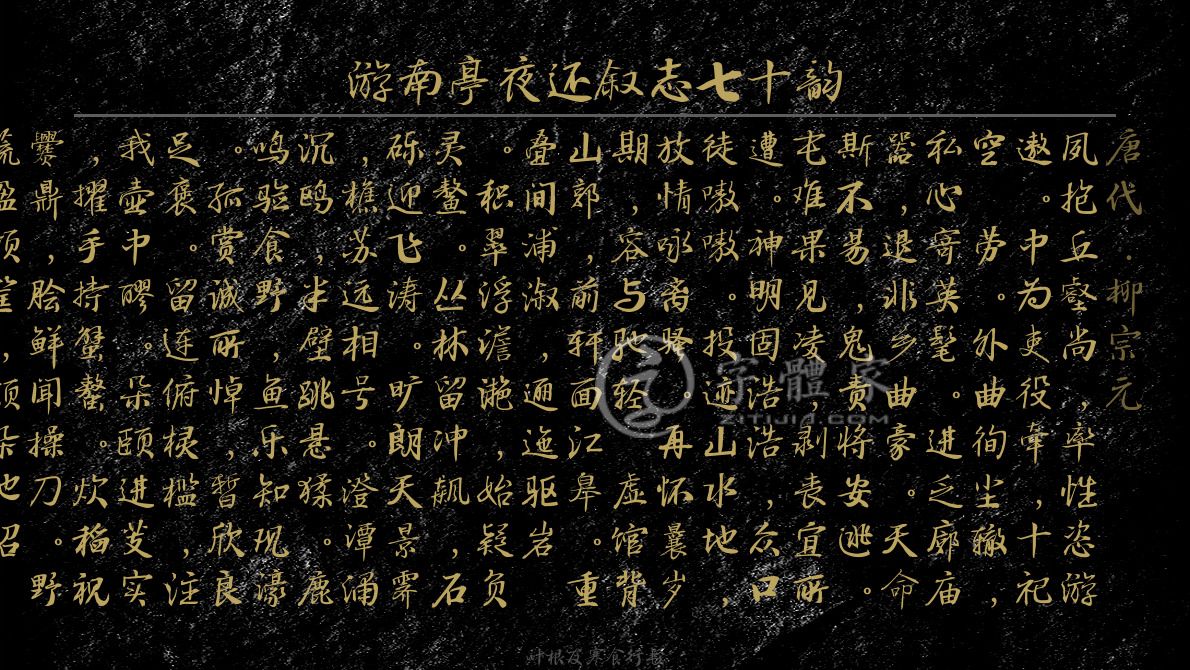 游南亭夜还叙志七十韵
唐代·柳宗元
夙抱丘壑尚，率性恣游
遨。中为吏役牵，十祀
空劳。外曲徇尘辙，
私心寄英髦。进乏廊庙
器，退非乡曲豪。天命
斯不易，鬼责将安逃。
屯难果见凌，剥丧宜所
遭。神明固浩浩，众口
徒嗷嗷。投迹山水地，
放情咏离骚。再怀曩岁
期，容与驰轻 虚馆背
山郭，前轩面江皋。重
叠间浦溆，逦迤驱岩
。积翠浮澹滟，始疑负
灵鳌。丛林留冲飙，石
砾迎飞涛。旷朗天景霁
，樵苏远相号。澄潭涌
沉鸥，半壁跳悬猱。鹿
鸣验食野，鱼乐知观濠
。孤赏诚所悼，暂欣良
足褒。留连俯棂槛，注
我壶中醪。朵颐进芰实
，擢手持蟹螯。炊稻视
爨鼎，脍鲜闻操刀。野
字體家
ZITIJIA.COM